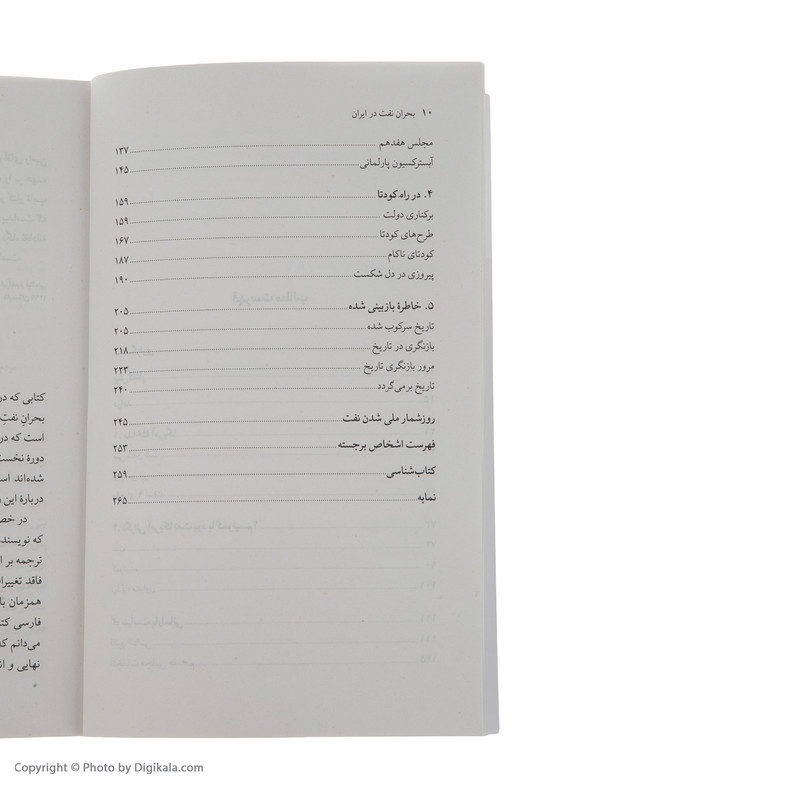 ۱۰ بحران نفت در ایران
مجلس هفدهم ۱۳۷
آبسترکسیون پارلمانی ۱۴۵
۴. در راه کودتا ۱۵۹
برکناری دولت ۱۵۹
طرح‌های کودتا ۱۶۷
کودتای ناکام ۱۸۷
پیروزی در دل شکست ۱۹۰
۵. خاطرهٔ بازبینی شده ۲۰۵
تاریخ سرکوب شده ۲۰۵
بازنگری در تاریخ ۲۱۸
مرور بازنگری تاریخ ۲۲۳
تاریخ برمی‌گردد ۲۴۰
روزشمار ملی شدن نفت ۲۴۵
فهرست اشخاص برجسته ۲۵۳
کتاب‌شناسی ۲۵۹
نمایه ۲۶۵
کتابی که در
بحرانِ نفتِ
است که در
دورهٔ نخست
شده‌اند
دربارهٔ این
در
که
ترجمه بر
فاقد
همزمان با
فارسی
می‌دانم که
نهایی و
Copyright © Photo by Digikala.com